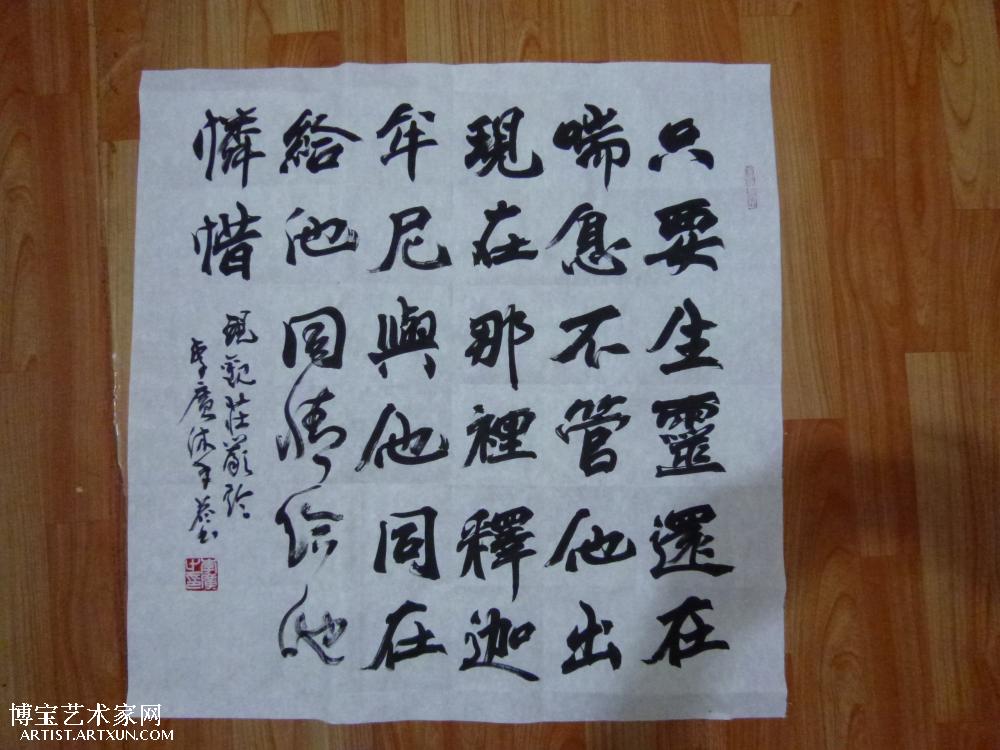 只要生靈還在
喘息不管他出
現在那裡釋迦
牟尼與他同在
給他同情給他
憐惜
現觀莊嚴論
李廣沐手恭书
博宝艺术家网
ARTIST.ARTXUN.COM